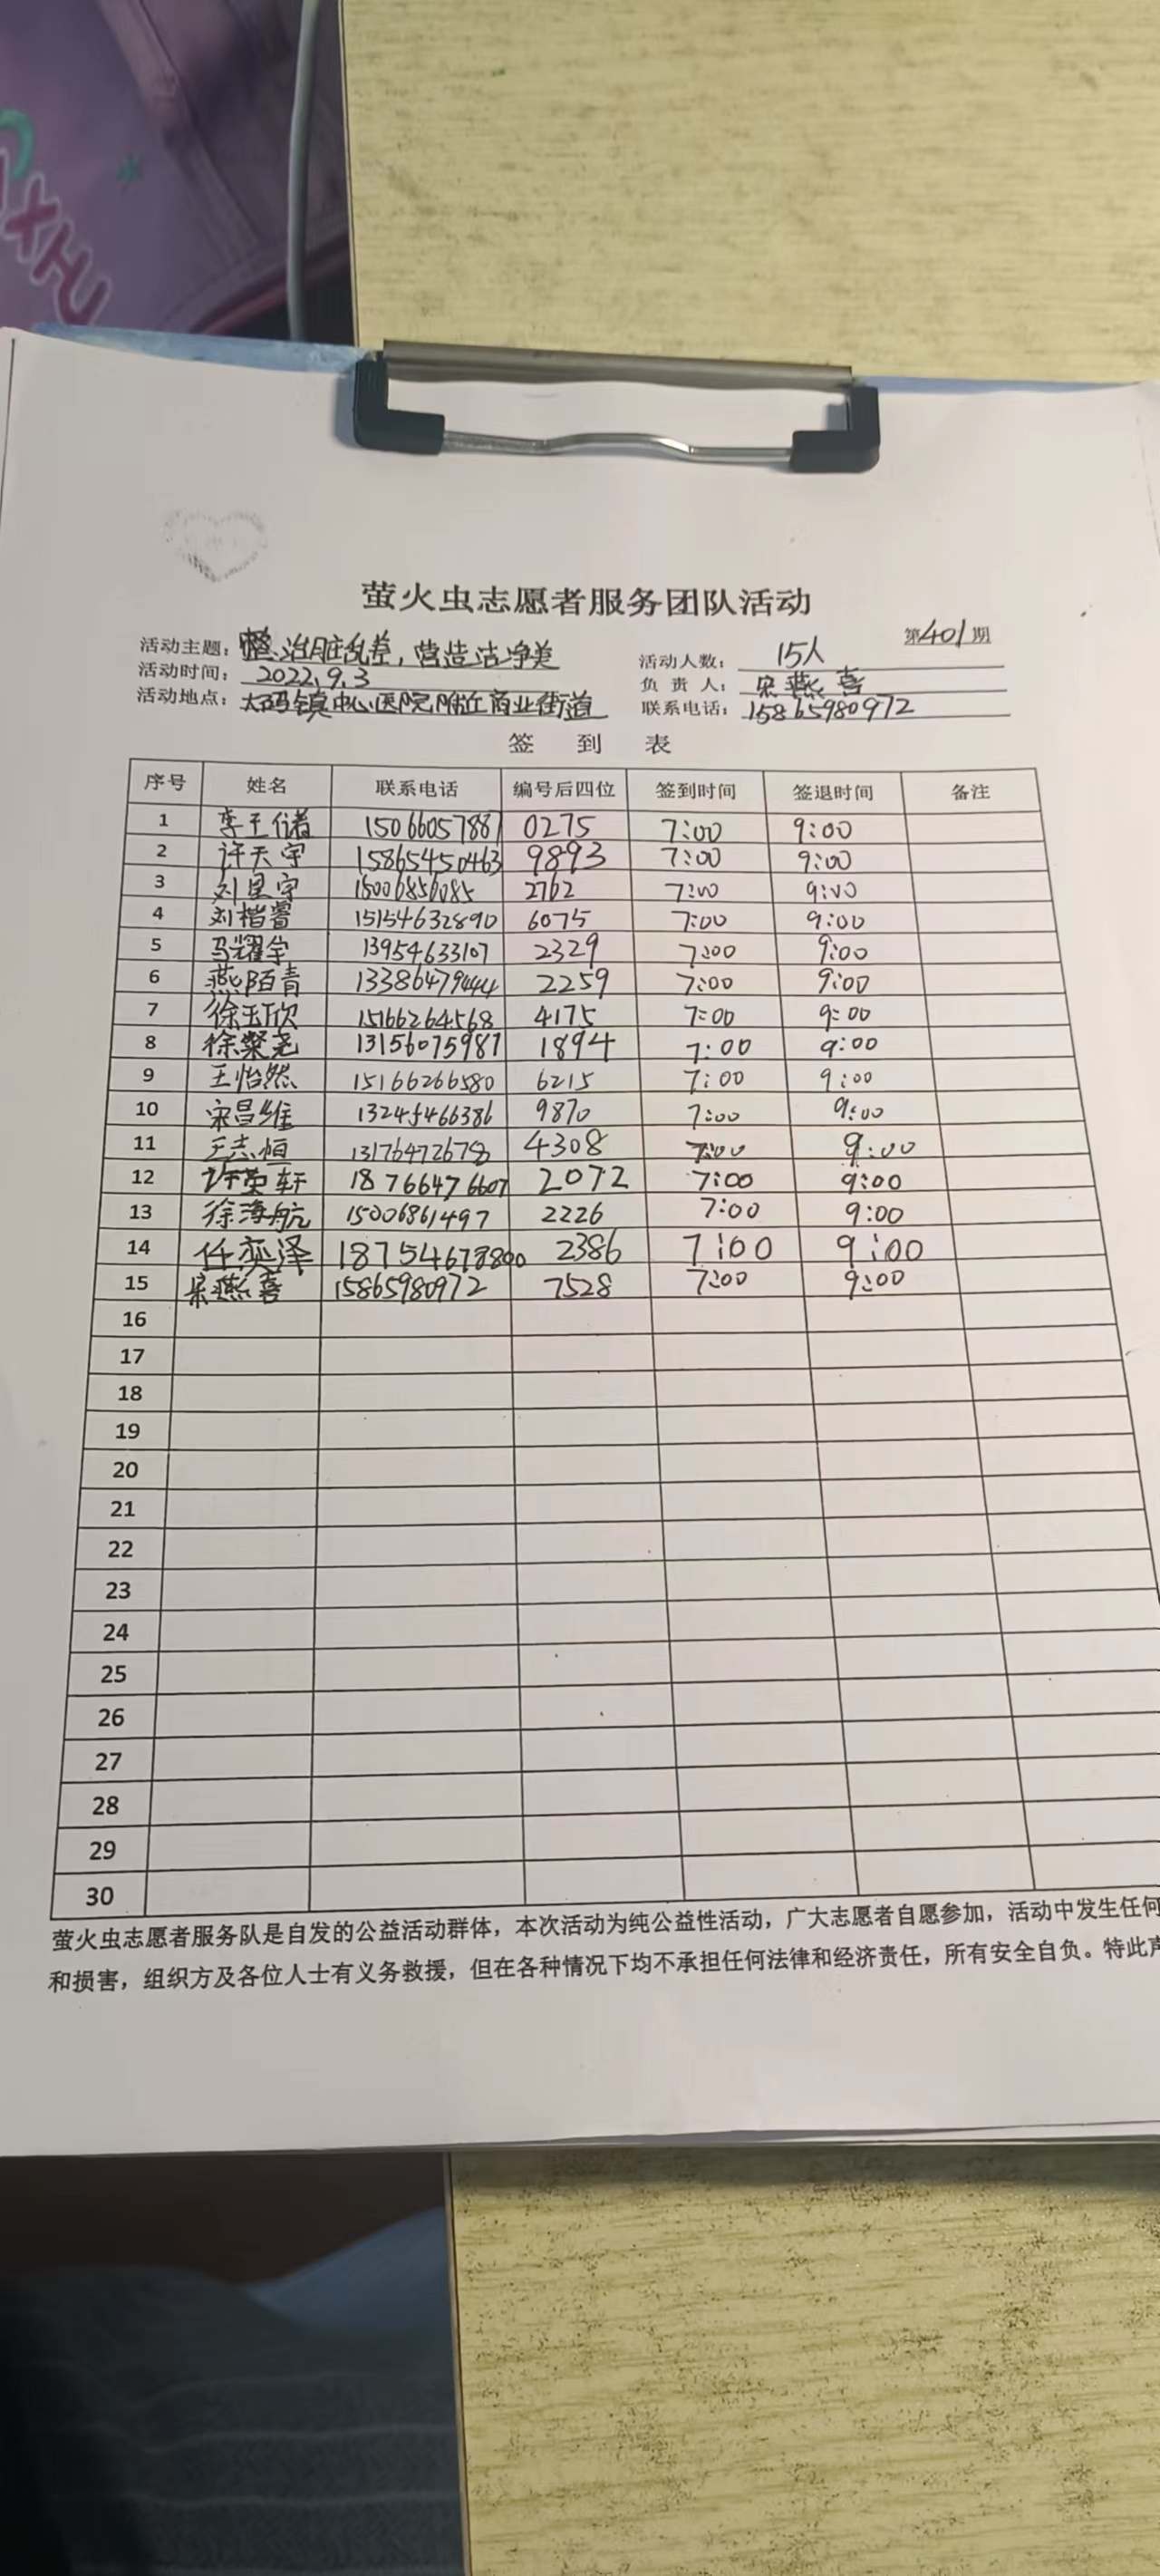 萤火虫志愿者服务团队活动
第401期
活动主题：整治脏乱差，营造洁净美 活动人数：15人
活动时间：2022.9.3 负责人：宋燕喜
活动地点：大码镇中心医院附近商业街道 联系电话：15865980972
签到表
序号 姓名 联系电话 编号后四位 签到时间 签退时间 备注
1 李王 15066057881 0275 7:00 9:00
2 许天宇 15865450463 9893 7:00 9:00
3 刘星宇 15006856085 2762 7:00 9:00
4 刘楷睿 15154632890 6075 7:00 9:00
5 马耀宇 13954633107 2329 7:00 9:00
6 燕陌青 13386479444 2259 7:00 9:00
7 徐玉欣 15166264568 4175 7:00 9:00
8 徐粲尧 13156075987 1894 7:00 9:00
9 王怡然 15166266580 6215 7:00 9:00
10 宋昌维 13245466386 9870 7:00 9:00
11 王志恒 13176472678 4308 7:00 9:00
12 许荣轩 18766476607 2072 7:00 9:00
13 徐海航 15006861497 2226 7:00 9:00
14 任奕泽 18754678800 2386 7:00 9:00
15 宋燕喜 15865980972 7528 7:00 9:00
16
17
18
19
20
21
22
23
24
25
26
27
28
29
30
萤火虫志愿者服务队是自发的公益活动群体，本次活动为纯公益性活动，广大志愿者自愿参加，活动中发生任何
和损害，组织方及各位人士有义务救援，但在各种情况下均不承担任何法律和经济责任，所有安全自负。特此声